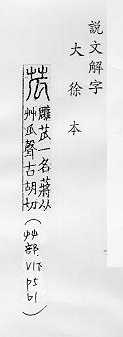 說文解字
大徐本
苽
雕苽一名蔣从
艸瓜聲古胡切
(艸部 V1下 p5 b1)